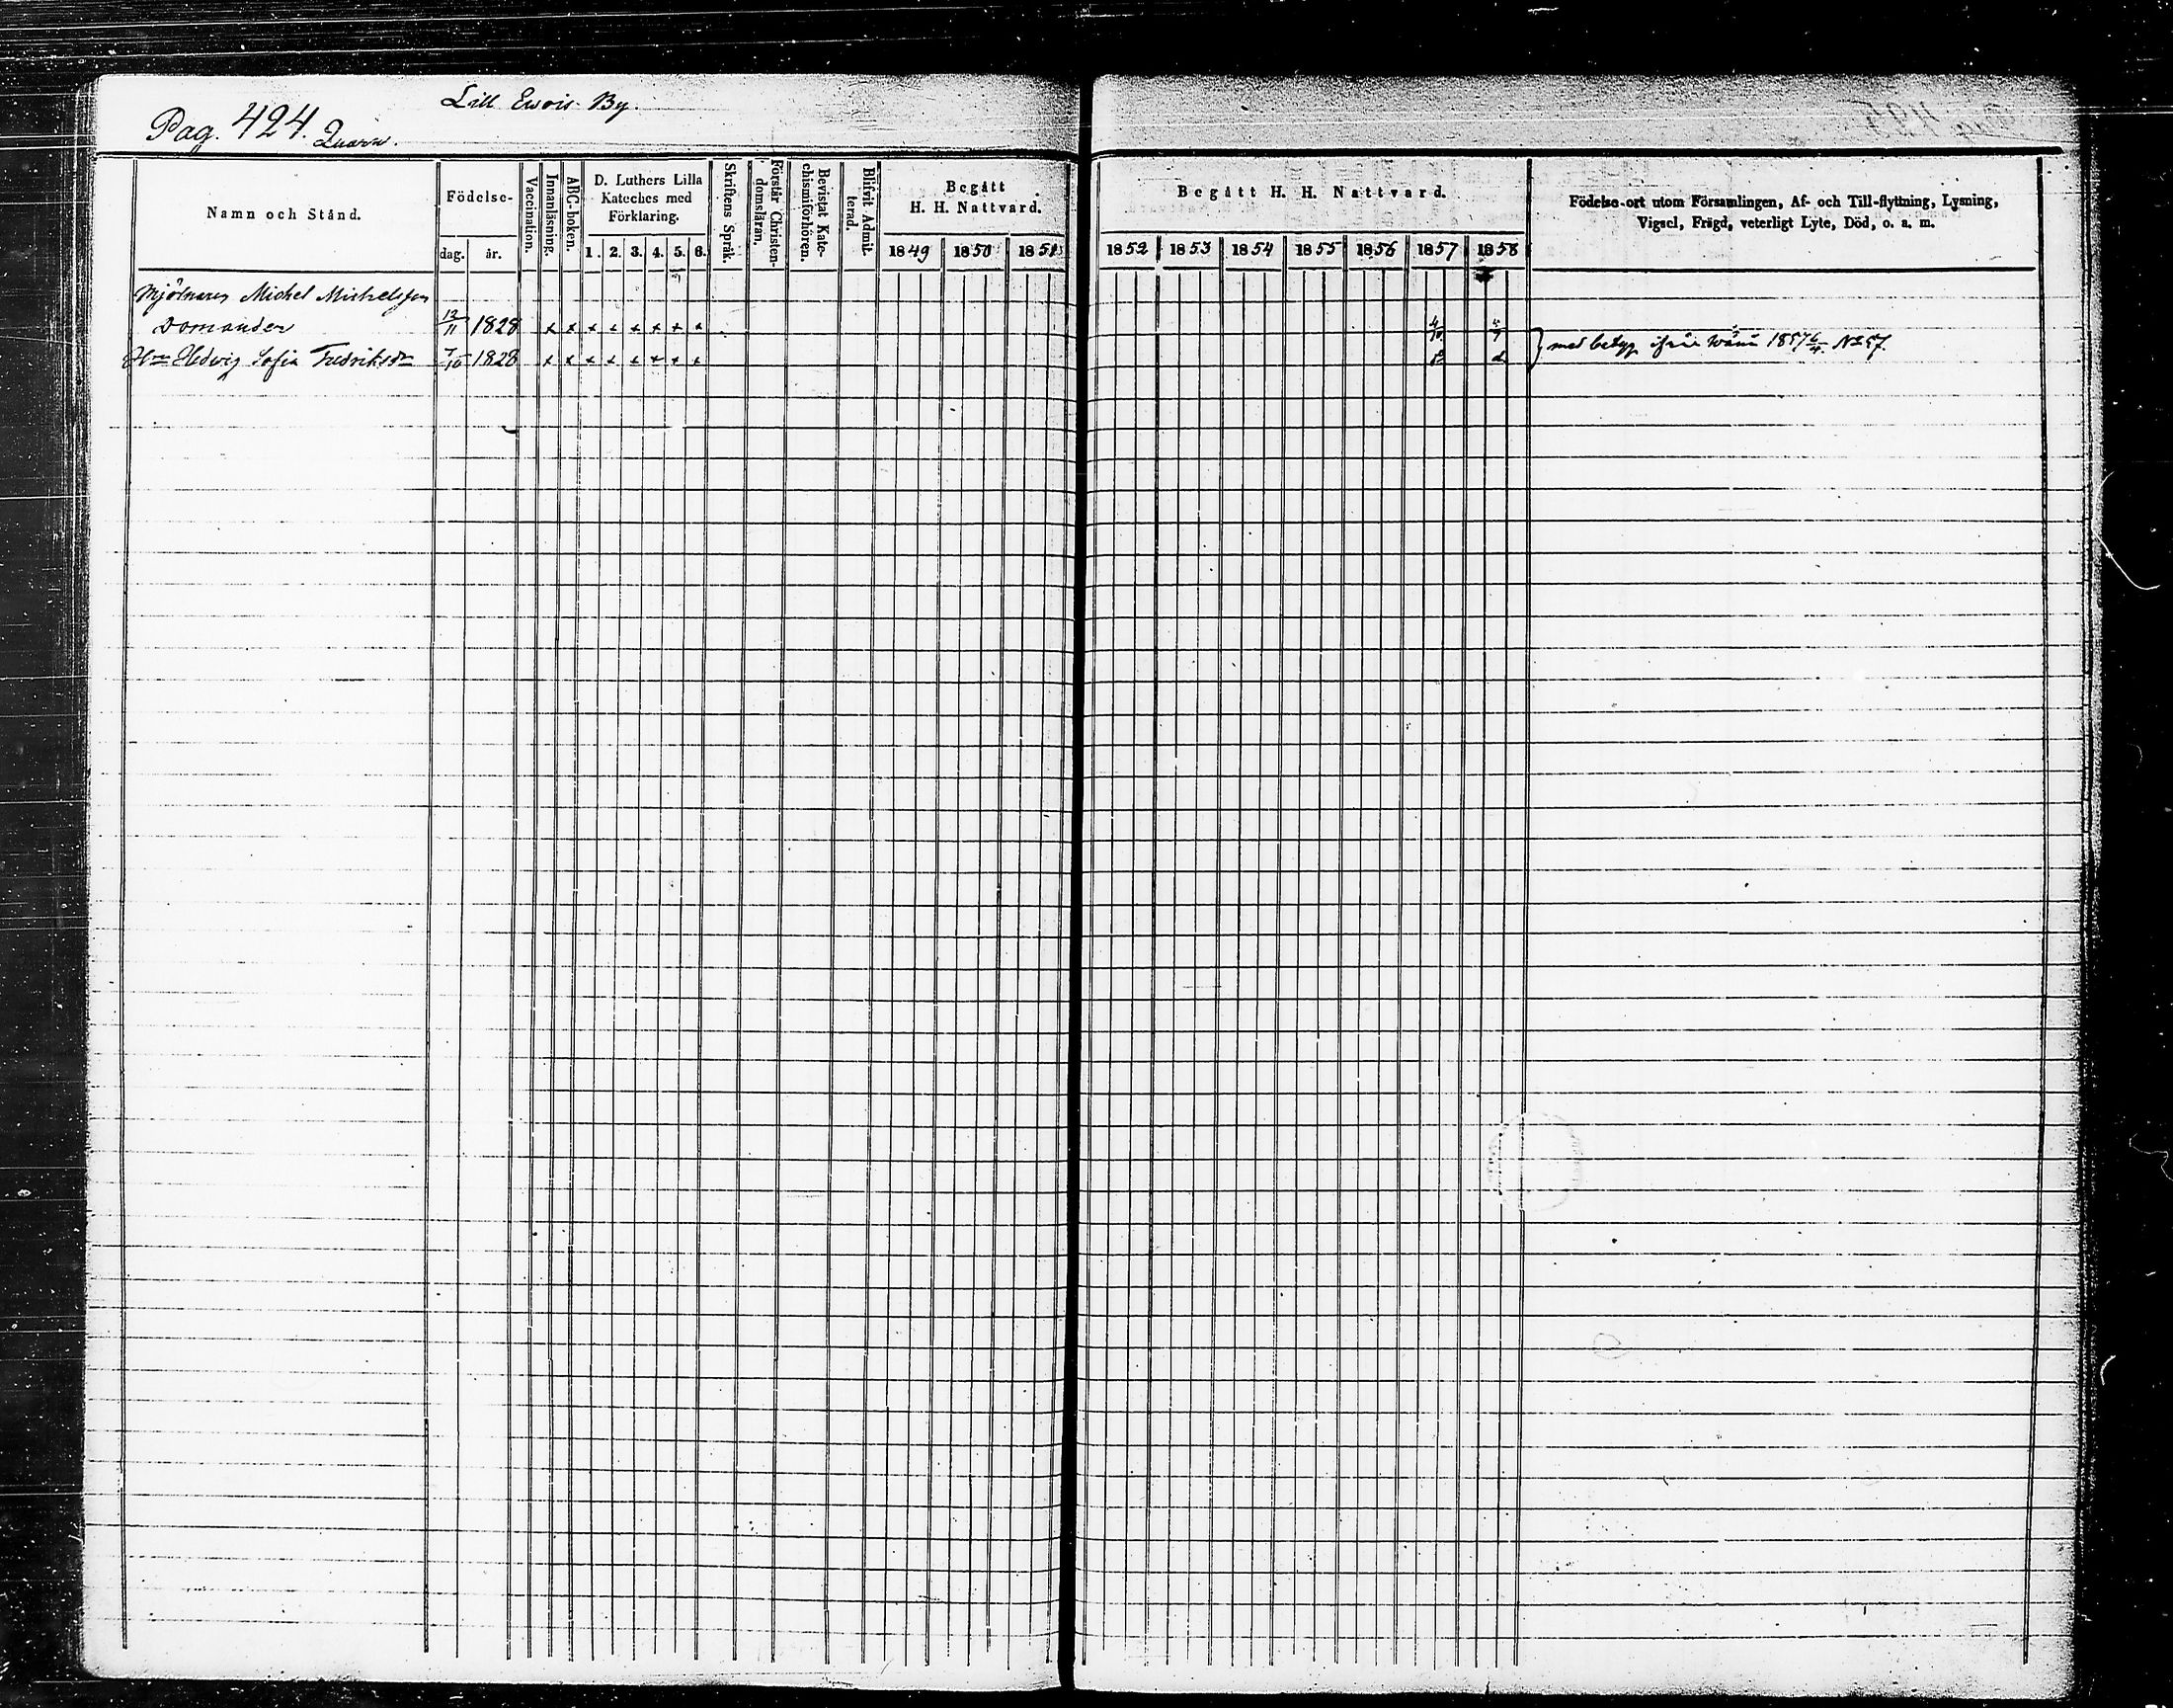 Lill Ewois By.
Pag. 424. Quarn.
Namn och Stånd.
Födelse-
dag. år.
Vaccination.
Innanläsning.
ABC-boken.
D. Luthers Lilla
Kateches med
Förklaring.
1. 2. 3. 4. 5. 6.
Skriftens Språk.
Förstår Christen-
domsläran.
Bevistat Kate-
chismiförhören.
Blifvit Admit-
terad.
Begått
H. H. Nattvard.
1849 1850 1851
Begått H. H. Nattvard.
1852 1853 1854 1855 1856 1857 1858
Födelse-ort utom Församlingen, Af- och Till-flyttning, Lysning,
Vigsel, Frägd, veterligt Lyte, Död, o. a. m.
Mjölnaren Michel Michelsson
Domander 12/11 1828 x x x x x x x x 4/10
Hru Hedvig Sofia Fredriksdr 7/10 1828 x x x x x x x x
med betyg ifrån 1857 6/4. No 57.